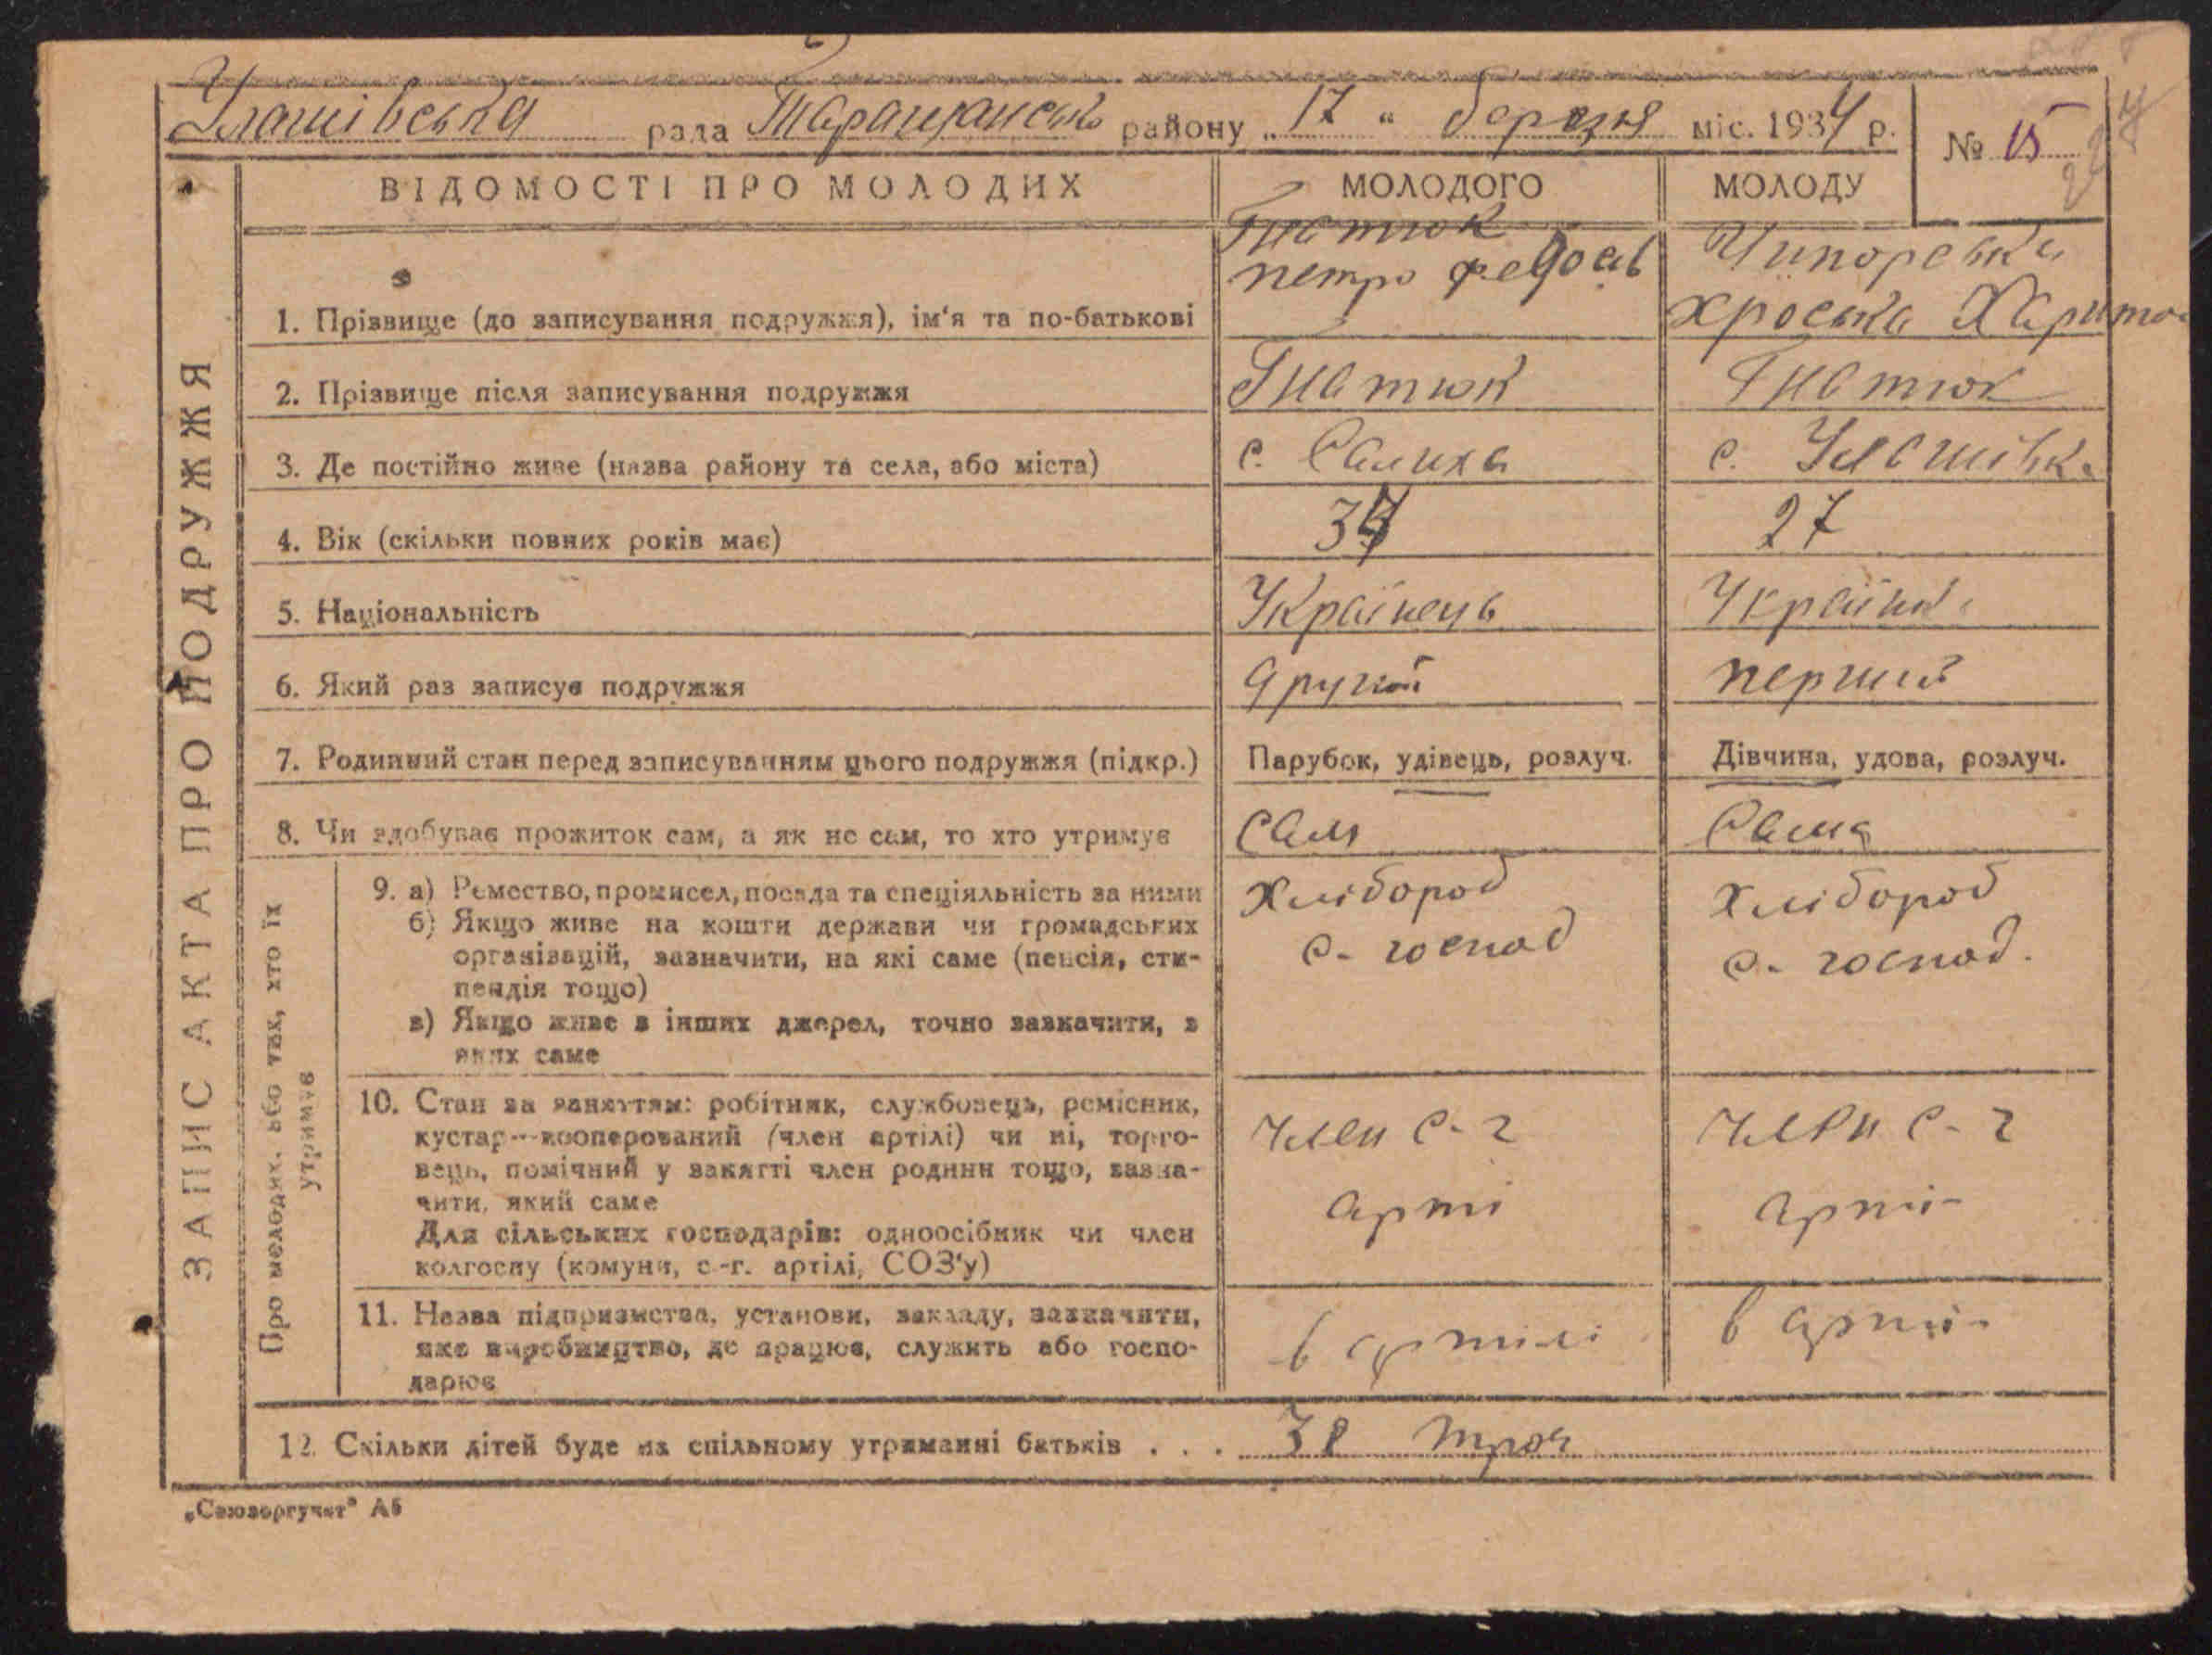 Улашівська рада Таращансько району „17“ березня міс. 1934 р.
№ 15
ВІДОМОСТІ ПРО МОЛОДИХ
МОЛОДОГО
МОЛОДУ
ЗАПИС АКТА ПРО ПОДРУЖЖЯ
1. Прізвище (до записування подружжя), ім'я та по-батькові
Гнатюк
петро Федосів
Хроська Харито
2. Прізвище після записування подружжя
Гнатюк
Гнатюк
3. Де постійно живе (назва району та села, або міста)
с. Салиха
с. Улашівка
4. Вік (скільки повних років має)
27
5. Національність
Українець
Українка
6. Який раз записує подружжя
другий
перший
7. Родинний стан перед записуванням цього подружжя (підкр.)
Парубок, удівець, розлуч.
Дівчина, удова, розлуч.
8. Чи здобуває прожиток сам, а як не сам, то хто утримує
Сам
Сама
Про молодих, або тих, хто їх
утримує
9. а) Ремество, промисел, посада та спеціяльність за ними
б) Якщо живе на кошти держави чи громадських
організацій, зазначити, на які саме (пенсія, сти-
пендія тощо)
в) Якщо живе з інших джерел, точно зазначити, з
яких саме
Хлібороб
с. господ
Хлібороб
с. господ.
10. Стан за заняттям: робітник, службовець, ремісник,
кустар--кооперований (член артілі) чи ні, торго-
вець, помічний у занятті член родини тощо, зазна-
чити, який саме
Для сільських господарів: одноосібник чи член
колгоспу (комуни, с.-г. артілі, СОЗ'у)
член с-г
арті
член с-г
арті-
11. Назва підприємства, установи, закладу, зазначити,
яке виробництво, де працює, служить або госпо-
дарює
в артілі
в арті-
12. Скільки дітей буде на спільному утриманні батьків . . .
троє
„Союзоргучет" А5